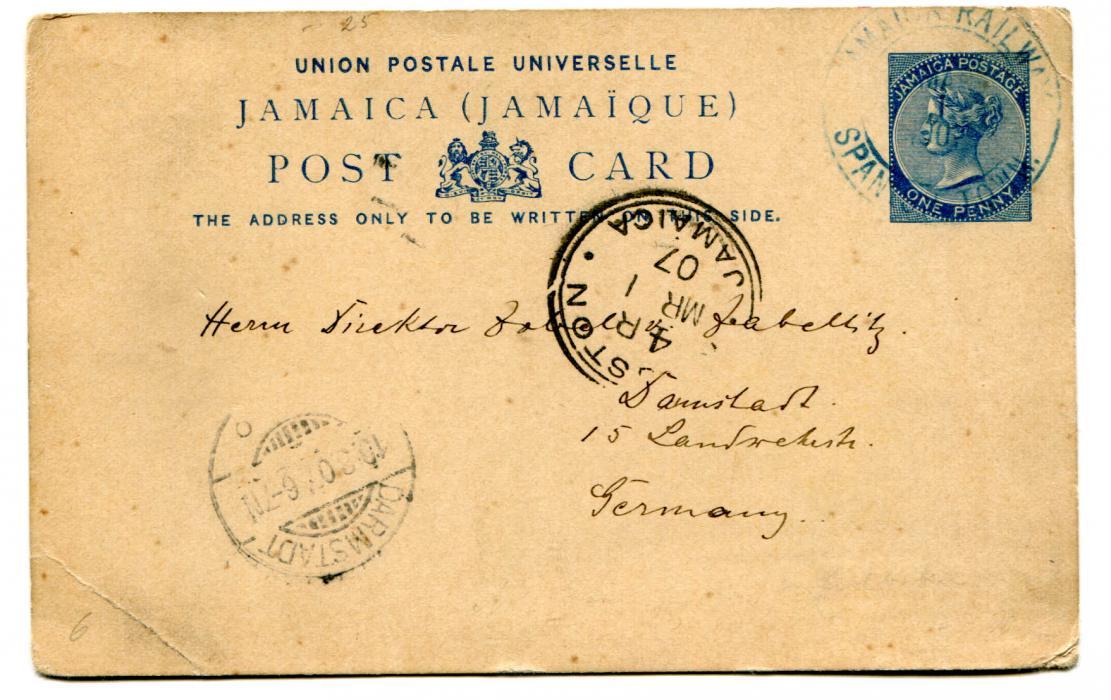 25
UNION POSTALE UNIVERSELLE
JAMAICA (JAMAÏQUE)
POST CARD
THE ADDRESS ONLY TO BE WRITTEN ON THIS SIDE.
JAMAICA RAILWAY
SPAN TOWN
JAMAICA POSTAGE
ONE PENNY
STON • JAMAICA
4 R 1
MR 1
07
Herrn Direktor v. Zabeltitz.
Darmstadt.
15 Landwehrstr.
Germany.
DARMSTADT
6-7N
6